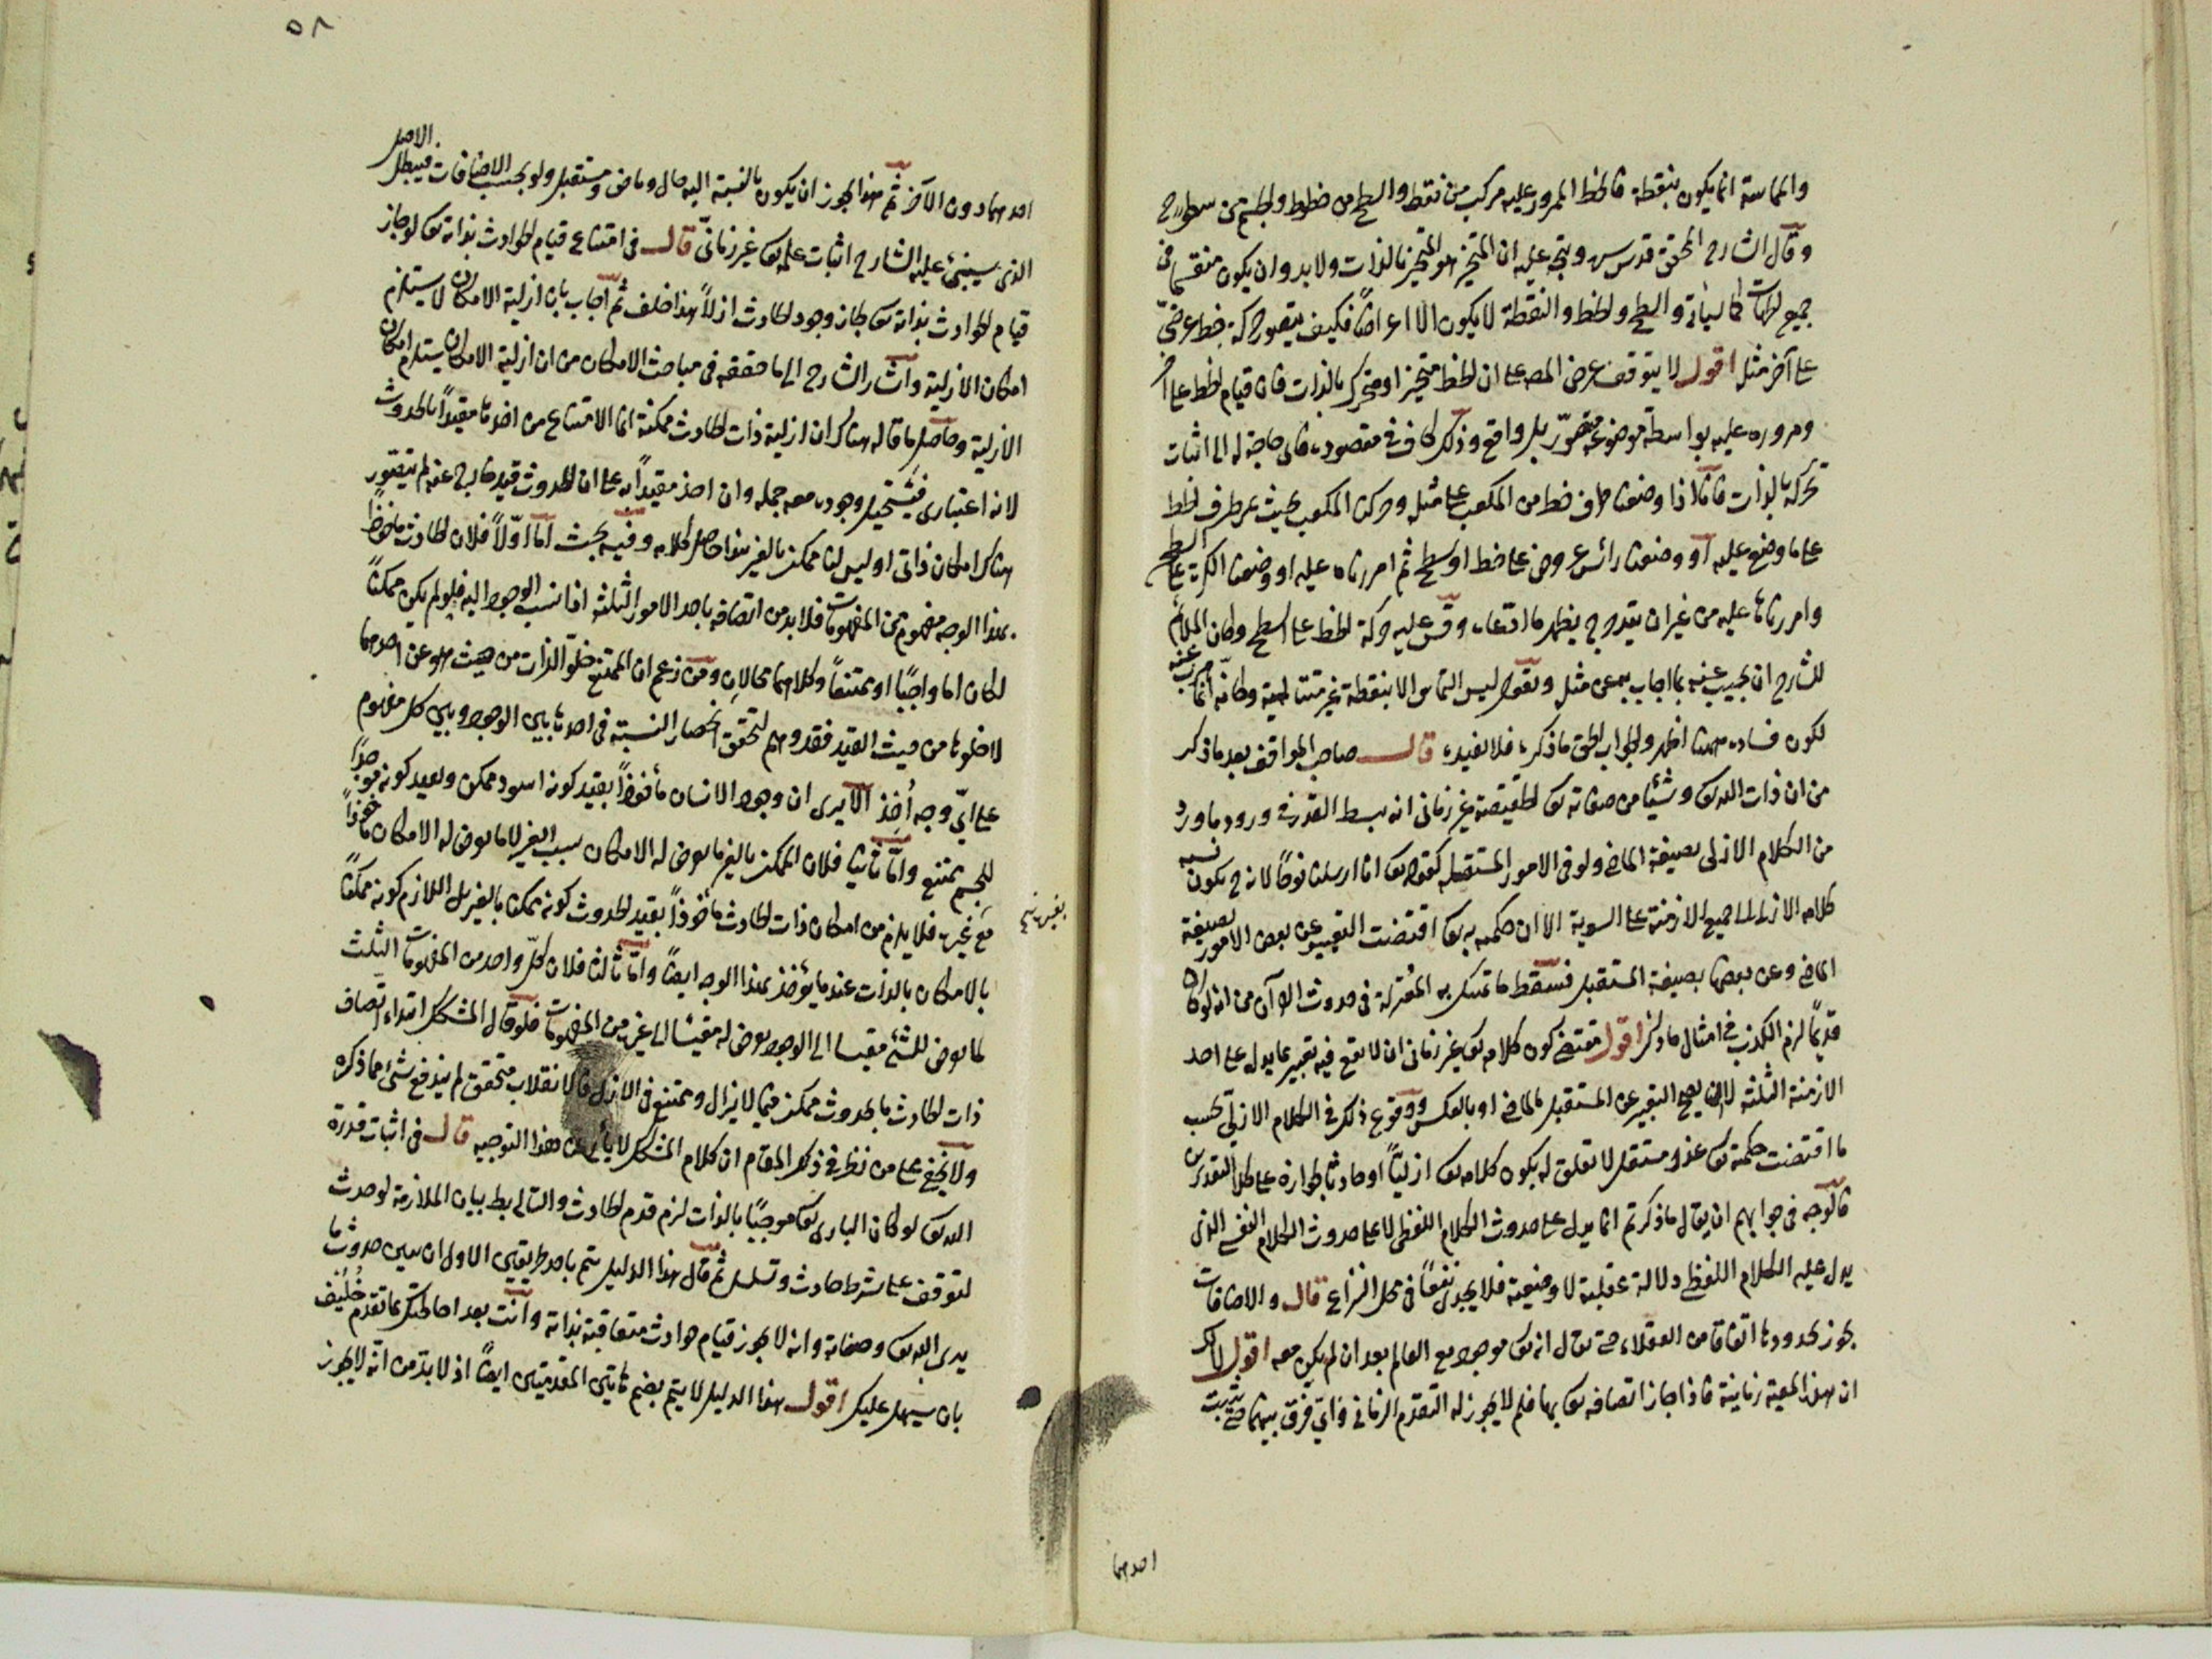 والمماسة انما يكون بنقطة فالخط الممرور عليه مركب من نقط والسطح من خطوط والجسم من سطوح
وقال الشارح المحقق قدس سره ويتجه عليه ان المتحيز هو المتحيز بالذات ولابد وان يكون منقسما في
جميع الجهات كما سيأتي والسطح والخط والنقطة لا يكون الا اعراضا فكيف يتصور حركة خط عرضي
على آخر مثله اقول لا يتوقف غرض المصه على ان الخط متحيز او متحرك بالذات فان قيام الخط على آخر
ومروره عليه بواسطة موضوعه متصور بل واقع وذلك كاف في مقصوده فاي حاجة له الى اثبات
تحركه بالذات فانا اذا وضعنا طرف خط من المكعب على مثله وحركنا المكعب بحيث يمر طرف الخط
على ما وضع عليه او وضعنا رأس مخروط على خط او سطح ثم امررناه عليه او وضعنا الكرة على السطح
وامررناها عليه من غير ان يتدحرج يظهر ما ادعاه وقس عليه حركة الخط على السطح وكان الملائم
للشارح ان يجيب عنه بما اجاب به عن مثله ويقول ليس التماس الا بنقطة غير متتالية وكأنه انما اعرض عنه
لكون فساده ههنا اظهر والجواب الحق ما ذكره فلا نفيده قال صاحب المواقف بعد ما ذكر
من ان ذات الله تع وشيئا من صفاته تع الحقيقية غير زماني انه يبسط القدر في ورود ما ورد
من الكلام الازلي بصيغة الماضي ولو في الامور المستقبله كقوله تع انا ارسلنا نوحا لانه ح يكون نسبة
كلامه الازلي الى جميع الازمنة على السوية الا ان حكمته تع اقتضت التعبير عن بعض الامور بصيغة
الماضي وعن بعضها بصيغة المستقبل فسقط ما تمسك به المعتزلة في حدوث القرآن من انه لو كان
قديما لزم الكذب في امثال ما ذكر اقول مقتضى كون كلامه تع غير زماني ان لا يقع فيه تعبير بما يدل على احد
الازمنة الثلثة لا ان يصح التعبير عن المستقبل بالماضي او بالعكس ووقوع ذلك في الكلام الازلي بحسب
ما اقتضت حكمته تع عذر مستقل لا تعلق له بكون كلامه تع ازليا او حادثا لجوازه على كلا التقديرين
فالوجه في جوابهم ان يقال ما ذكرتم انما يدل على حدوث الكلام اللفظي لا على حدوث الكلام النفسي الذي
يدل عليه الكلام اللفظي دلالة عقلية لا وضعية فلا يجدي نفعا في محل النزاع قال والاضافات
يجوز تجددها اتفاقا من العقلاء حتى يقال انه تع موجود مع العالم بعد ان لم يكن معه اقول لا شك
ان هذا المعية زمانية فاذا جاز اتصافه تع بها فلم لا يجوز له التقدم الزماني واي فرق بينهما حتى يثبت
احدهما
٥٨
احدهما دون الآخر ثم هذا يجوز ان يكون بالنسبة اليه حال وماض ومستقبل ولو بحسب الاضافات فيبطل الاصل
الذي سيبني عليه الشارح اثبات علمه تع غير زماني قال في امتناع قيام الحوادث بذاته تع لو جاز
قيام الحوادث بذاته تع لجاز وجود الحادث ازلا هذا خلف ثم اجاب بان ازلية الامكان لا يستلزم
امكان الازلية واشار الشارح الى ما حققه في مباحث الامكان من ان ازلية الامكان يستلزم امكان
الازلية وحاصل ما قاله هناك ان ازلية ذات الحادث ممكنة انما الامتناع من اخذها مقيدا بالحدوث
لانه اعتباري فيستحيل وجوده معه جمله وان اخذ مقيدا به على ان الحدوث قيد خارج عنه لم يتصور
هناك امكان ذاتي اوليس لنا ممكن بالغير هذا حاصل كلامه وفيه بحث اما اولا فلان الحادث مأخوذا
بهذا الوجه مفهوم من المفهومات فلابد من اتصافه باحد الامور الثلثه اذا نسب الوجود اليه فلو لم يكن ممكنا
لكان اما واجبا او ممتنعا وكلاهما محالان ومن زعم ان الممتنع خلو الذات من حيث هو عن احدهما
لا خلوها من حيث القيد فقد وهم لتحقق انحصار النسبة في احدها بين الوجود وبين كل مفهوم
على اي وجه اخذ الا يرى ان وجود الانسان مأخوذا بقيد كونه اسود ممكن وبقيد كونه موجدا
للجسم ممتنع واما ثانيا فلان الممكن بالغير ما يعرض له الامكان بسبب الغير لا ما يعرض له الامكان مأخوذا
مع غيره فلا يلزم من امكان ذات الحادث مأخوذا بقيد الحدوث كونه ممكنا بالغير بل اللازم كونه ممكنا
بالامكان بالذات عند ما يؤخذ بهذا الوجه ايضا واما ثالثا فلان كل واحد من المفهومات الثلث
كما يعرض للشئ مقيسا الى الوجود يعرض له مقيسا الى غيره من المفهومات فلو قال المشكك ابتداء اتصاف
ذات الحادث بالحدوث ممكن فيما لا يزال وممتنع في الازل فالانقلاب متحقق لم يندفع شئ مما ذكره
ولا يخفى على من نظر في ذلك المقام ان كلام المشكك لا يأبى عن هذا التوجيه قال في اثبات قدرة
الله تع لو كان الباري تع موجبا بالذات لزم قدم الحادث والتالي بط بيان الملازمة لو حدث
لتوقف على شرط حادث وتسلسل ثم قال هذا الدليل يتم باحد طريقين الاول ان يبين حدوث ما
يرى الله تع وصفاته وانه لا يجوز قيام حوادث متعاقبة بذاته وانت بعد احاطتك بما تقدم خليق
بان يسهل عليك اقول هذا الدليل لا يتم بضم هاتين المقدمتين ايضا اذ لابد من انه لا يجوز